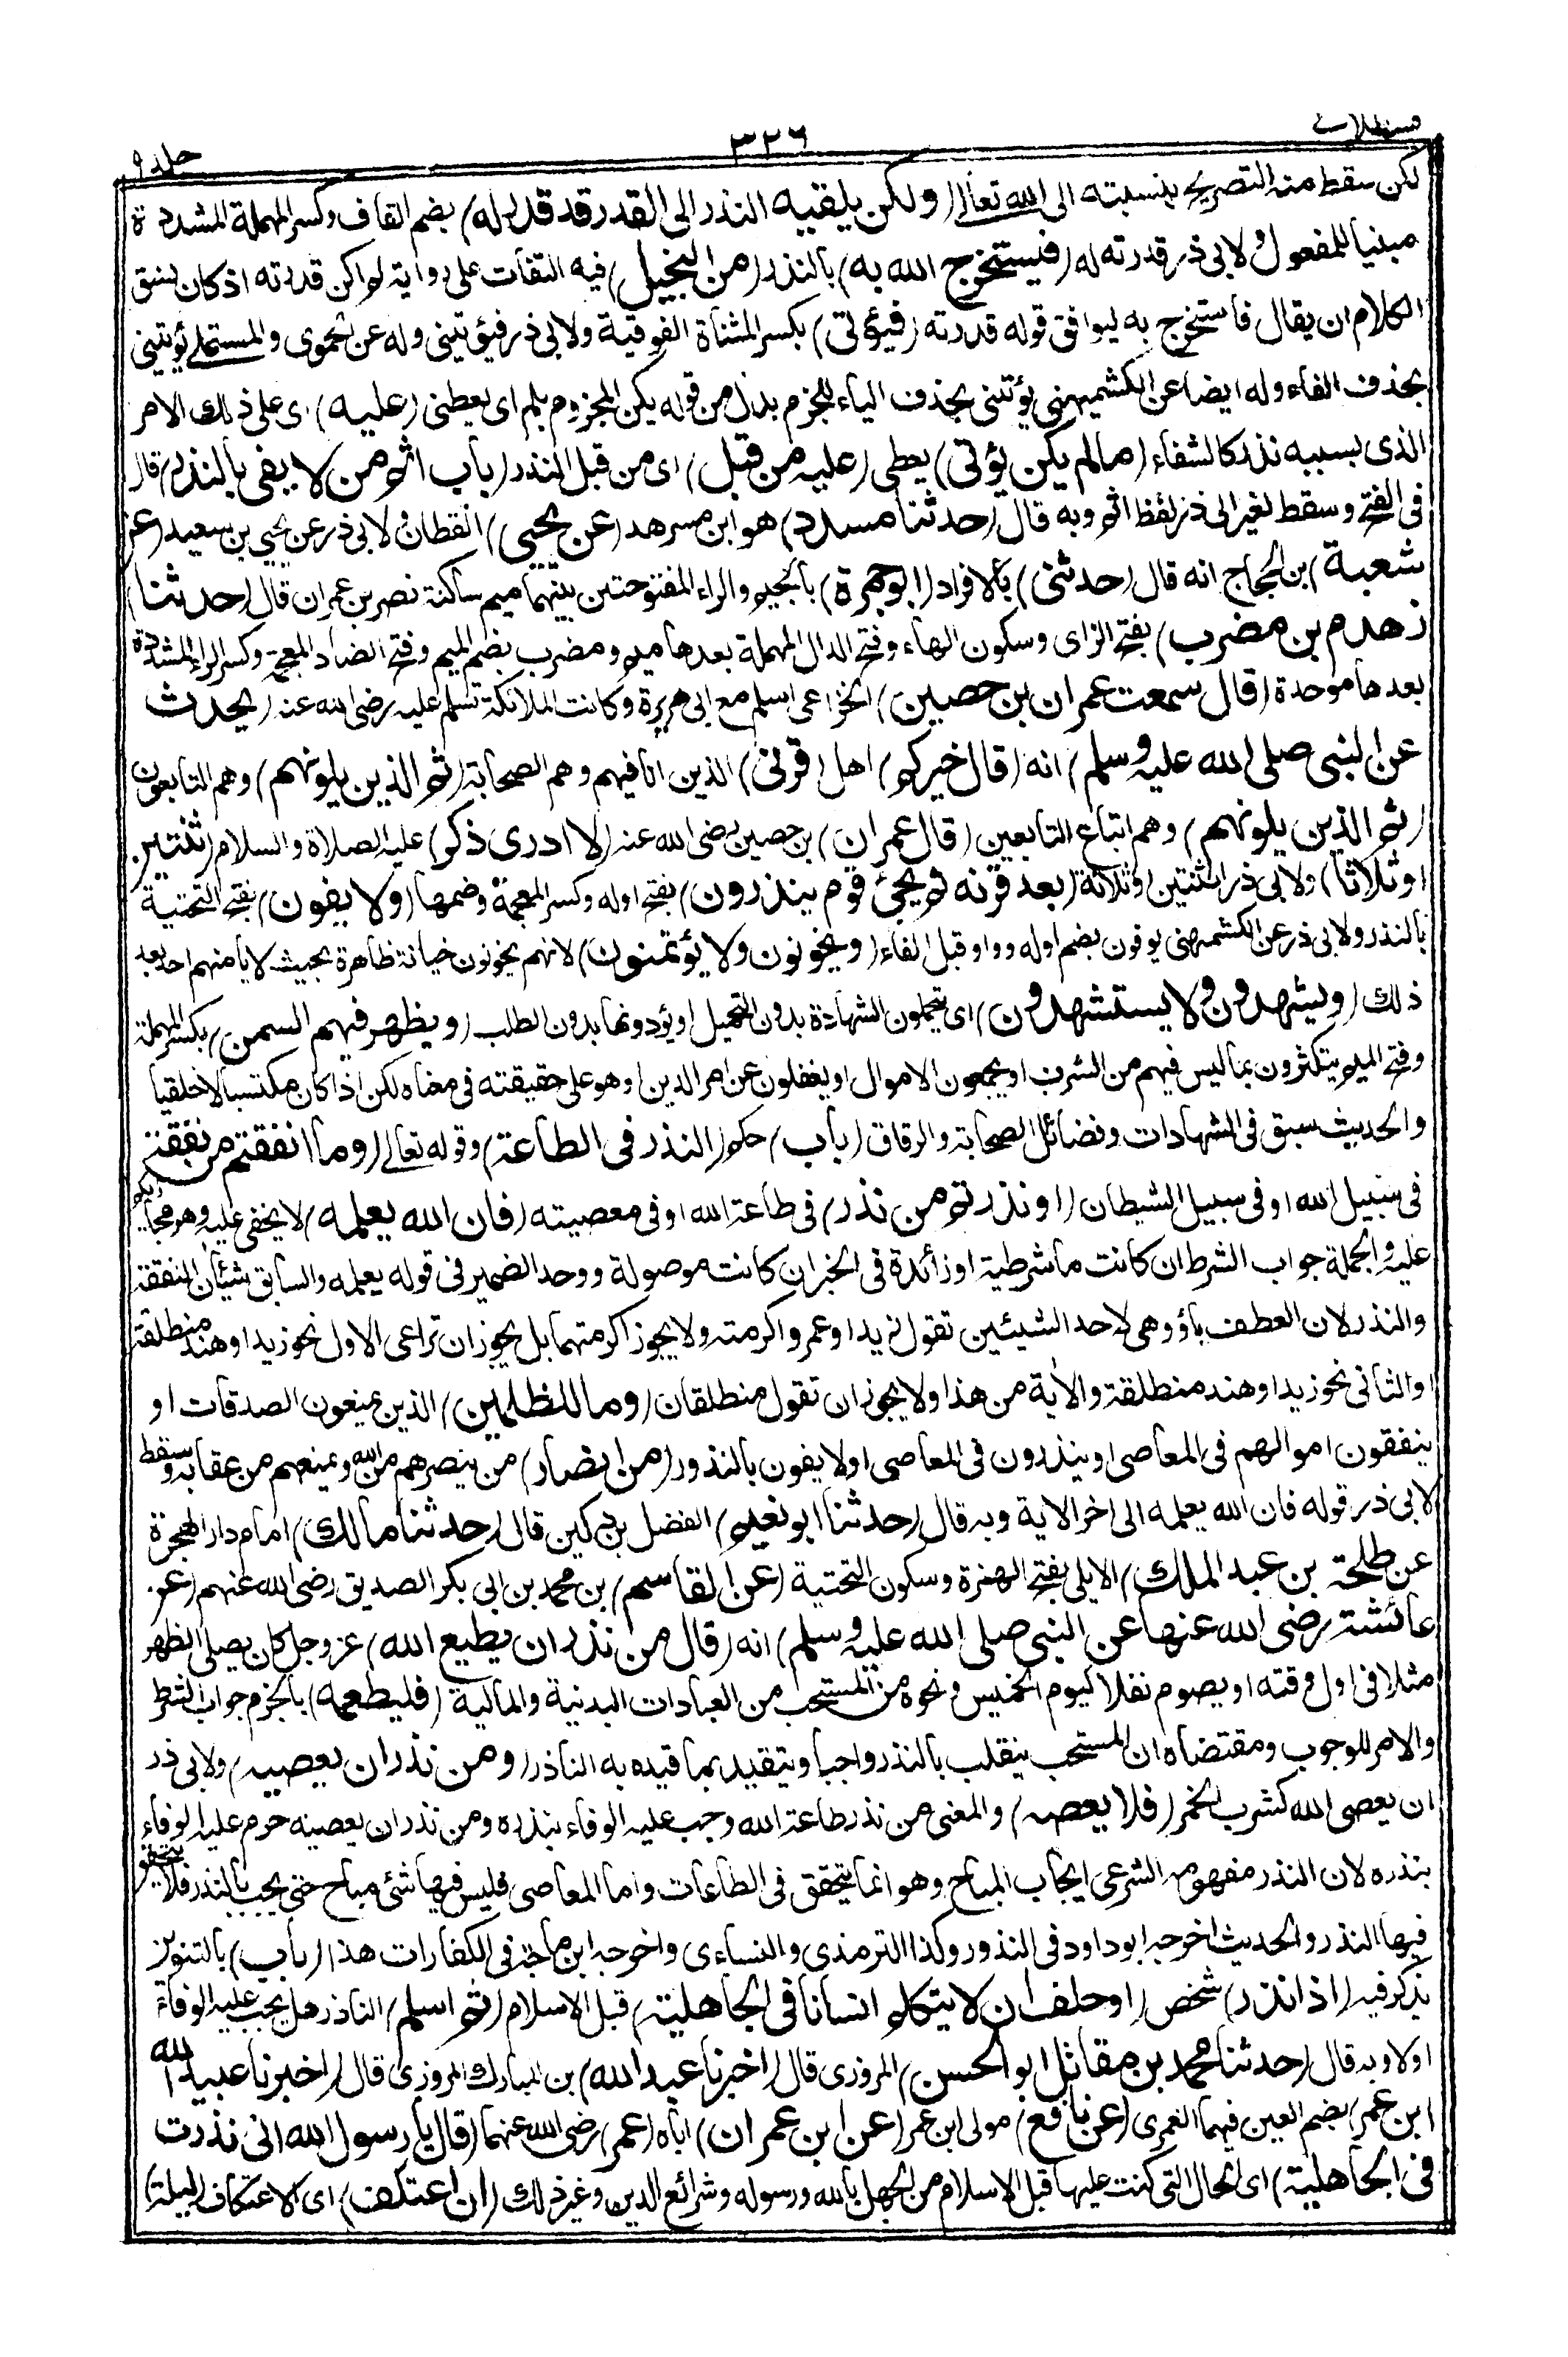 قسطلانی
٣٢٦
جلد ٩
لكن سقط منه التصريح بنسبته الى الله تعالى (ولكن يلقيه النذر الى القدر قد قدر له) بضم القاف وكسر المهملة المشددة
مبنيا للمفعول ولابى ذر قدرته له (فيستخرج الله به) بالنذر (من البخيل) فيه التفات على رواية لم اكن قدرته اذ كان نسق
الكلام ان يقال فاستخرج به ليوافق قوله قدرته (فيؤتى) بكسر المثناة الفوقية ولابى ذر فيؤتينى وله عن الحموى والمستملى يؤتينى
بحذف الفاء وله ايضا عن الكشميهنى يؤتنى بحذف الياء للجزم بدل من قوله يكن المجزوم بلم اى يعطنى (عليه) اى على ذلك الامر
الذى بسببه نذر كالشفاء (مالم يكن يؤتى) يعطى (عليه من قبل) اى من قبل النذر (باب اثم من لا يفى بالنذر) قال
فى الفتح وسقط لغير ابى ذر لفظ اثم وبه قال (حدثنا مسدد) هو ابن مسرهد (عن يحيى) القطان ولابى ذر عن يحيى بن سعيد (عن
شعبة) بن الحجاج انه قال (حدثنى) بالافراد (ابو جمرة) بالجيم والراء المفتوحتين بينهما ميم ساكنة نصر بن عمران قال (حدثنا)
زهدم بن مضرب) بفتح الزاى وسكون الهاء وفتح الدال المهملة بعدها ميم ومضرب بضم الميم وفتح الضاد المعجمة وكسر الراء المشددة
بعدها موحدة (قال سمعت عمران بن حصين) الخزاعى اسلم مع ابى هريرة وكانت الملائكة تسلم عليه رضى الله عنه (يحدث
عن النبى صلى الله عليه وسلم) انه (قال خيركم) اهل (قرنى) الذين انا فيهم وهم الصحابة (ثم الذين يلونهم) وهم التابعون
(ثم الذين يلونهم) وهم اتباع التابعين (قال عمران) بن حصين رضى الله عنه (لا ادرى ذكر) عليه الصلاة والسلام (ثنتين
او ثلاثا) ولابى ذر اثنتين او ثلاثة (بعد قرنه ثم يجئ قوم ينذرون) بفتح اوله وكسر المعجمة وضمها (ولا يفون) بفتح التحتية
بالنذر ولابى ذر عن الكشميهنى يوفون بضم اوله وواو قبل الفاء (ويخونون ولا يؤتمنون) لانهم يخونون خيانة ظاهرة بحيث لا يأمنهم احد بعد
ذلك (ويشهدون ولا يستشهدون) اى يتحملون الشهادة بدون التحميل او يؤدونها بدون الطلب (ويظهر فيهم السمن) بكسر المهملة
وفتح الميم يتكثرون بما ليس فيهم من الشرف او يجمعون الاموال او يغفلون عن امر الدين او هو على حقيقته فى معناه لكن اذا كان مكتسبا لا خلقيا
والحديث سبق فى الشهادات وفضائل الصحابة والرقاق (باب) حكم (النذر فى الطاعة) وقوله تعالى (وما انفقتم من نفقة
فى سبيل الله او فى سبيل الشيطان (او نذرتم من نذر) فى طاعة الله او فى معصيته (فان الله يعلمه) لا يخفى عليه وهو مجازيكم
عليه والجملة جواب الشرط ان كانت ما شرطية او زائدة فى الخبر ان كانت موصولة ووحد الضمير فى قوله يعلمه والسابق شيئان النفقة
والنذر لان العطف باؤ وهى لاحد الشيئين تقول زيدا وعمرو اكرمته ولا يجوز اكرمتهما بل يجوز ان تراعى الاول نحو زيدا وهند منطلقة
والثانى نحو زيدا وهند منطلقة والآية من هذا ولا يجوز ان تقول منطلقان (وما للظلمين) الذين يمنعون الصدقات او
ينفقون اموالهم فى المعاصى او ينذرون فى المعاصى او لا يفون بالنذور (من انصار) من ينصرهم من الله ويمنعهم من عقابه وسقط
لابى ذر قوله فان الله يعلمه الى اخر الاية وبه قال (حدثنا ابو نعيم) الفضل بن دكين قال (حدثنا مالك) امام دار الهجرة
عن طلحة بن عبد الملك) الايلى بفتح الهمزة وسكون التحتية (عن القاسم) بن محمد بن ابى بكر الصديق رضى الله عنهم (عن
عائشة رضى الله عنها عن النبى صلى الله عليه وسلم) انه (قال من نذر ان يطيع الله) عز وجل كان يصلى الظهر
مثلا فى اول وقته او يصوم نفلا كيوم الخميس ونحوه من المستحب من العبادات البدنية والمالية (فليطعه) بالجزم جواب الشرط
والامر للوجوب ومقتضاه ان المستحب ينقلب بالنذر واجبا ويتقيد بما قيده به الناذر (ومن نذر ان يعصيه) ولابى ذر
ان يعصى الله كشرب الخمر (فلا يعصه) والمعنى من نذر طاعة الله وجب عليه الوفاء بنذره ومن نذر ان يعصيه حرم عليه الوفاء
بنذره لان النذر مفهومه الشرعى ايجاب المباح وهو انما يتحقق فى الطاعات واما المعاصى فليس فيها شئ مباح حتى يجب بالنذر فلا يتحقق
فيها النذر والحديث اخرجه ابو داود فى النذور وكذا الترمذى والنساءى واخرجه ابن ماجة فى الكفارات هذا (باب) بالتنوين
يذكر فيه (اذا نذر) شخص (او حلف ان لا يتكلم انسانا فى الجاهلية) قبل الاسلام (ثم اسلم) الناذر هل يجب عليه الوفاء
اولا وبه قال (حدثنا محمد بن مقاتل ابو الحسن) المروزى قال (اخبرنا عبد الله) بن المبارك المروزى قال (اخبرنا عبيد الله
ابن عمر) بضم العين فيهما العمرى (عن نافع) مولى ابن عمر (عن ابن عمر ان) اباه (عمر) رضى الله عنهما (قال يا رسول الله انى نذرت
فى الجاهلية) اى الحال التى كنت عليها قبل الاسلام من الجهل بالله ورسوله وشرائع الدين وغير ذلك (ان اعتكف) اى الاعتكاف (ليلة)